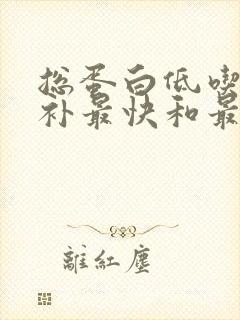 总蛋白低喫
补最快和最
離紅塵